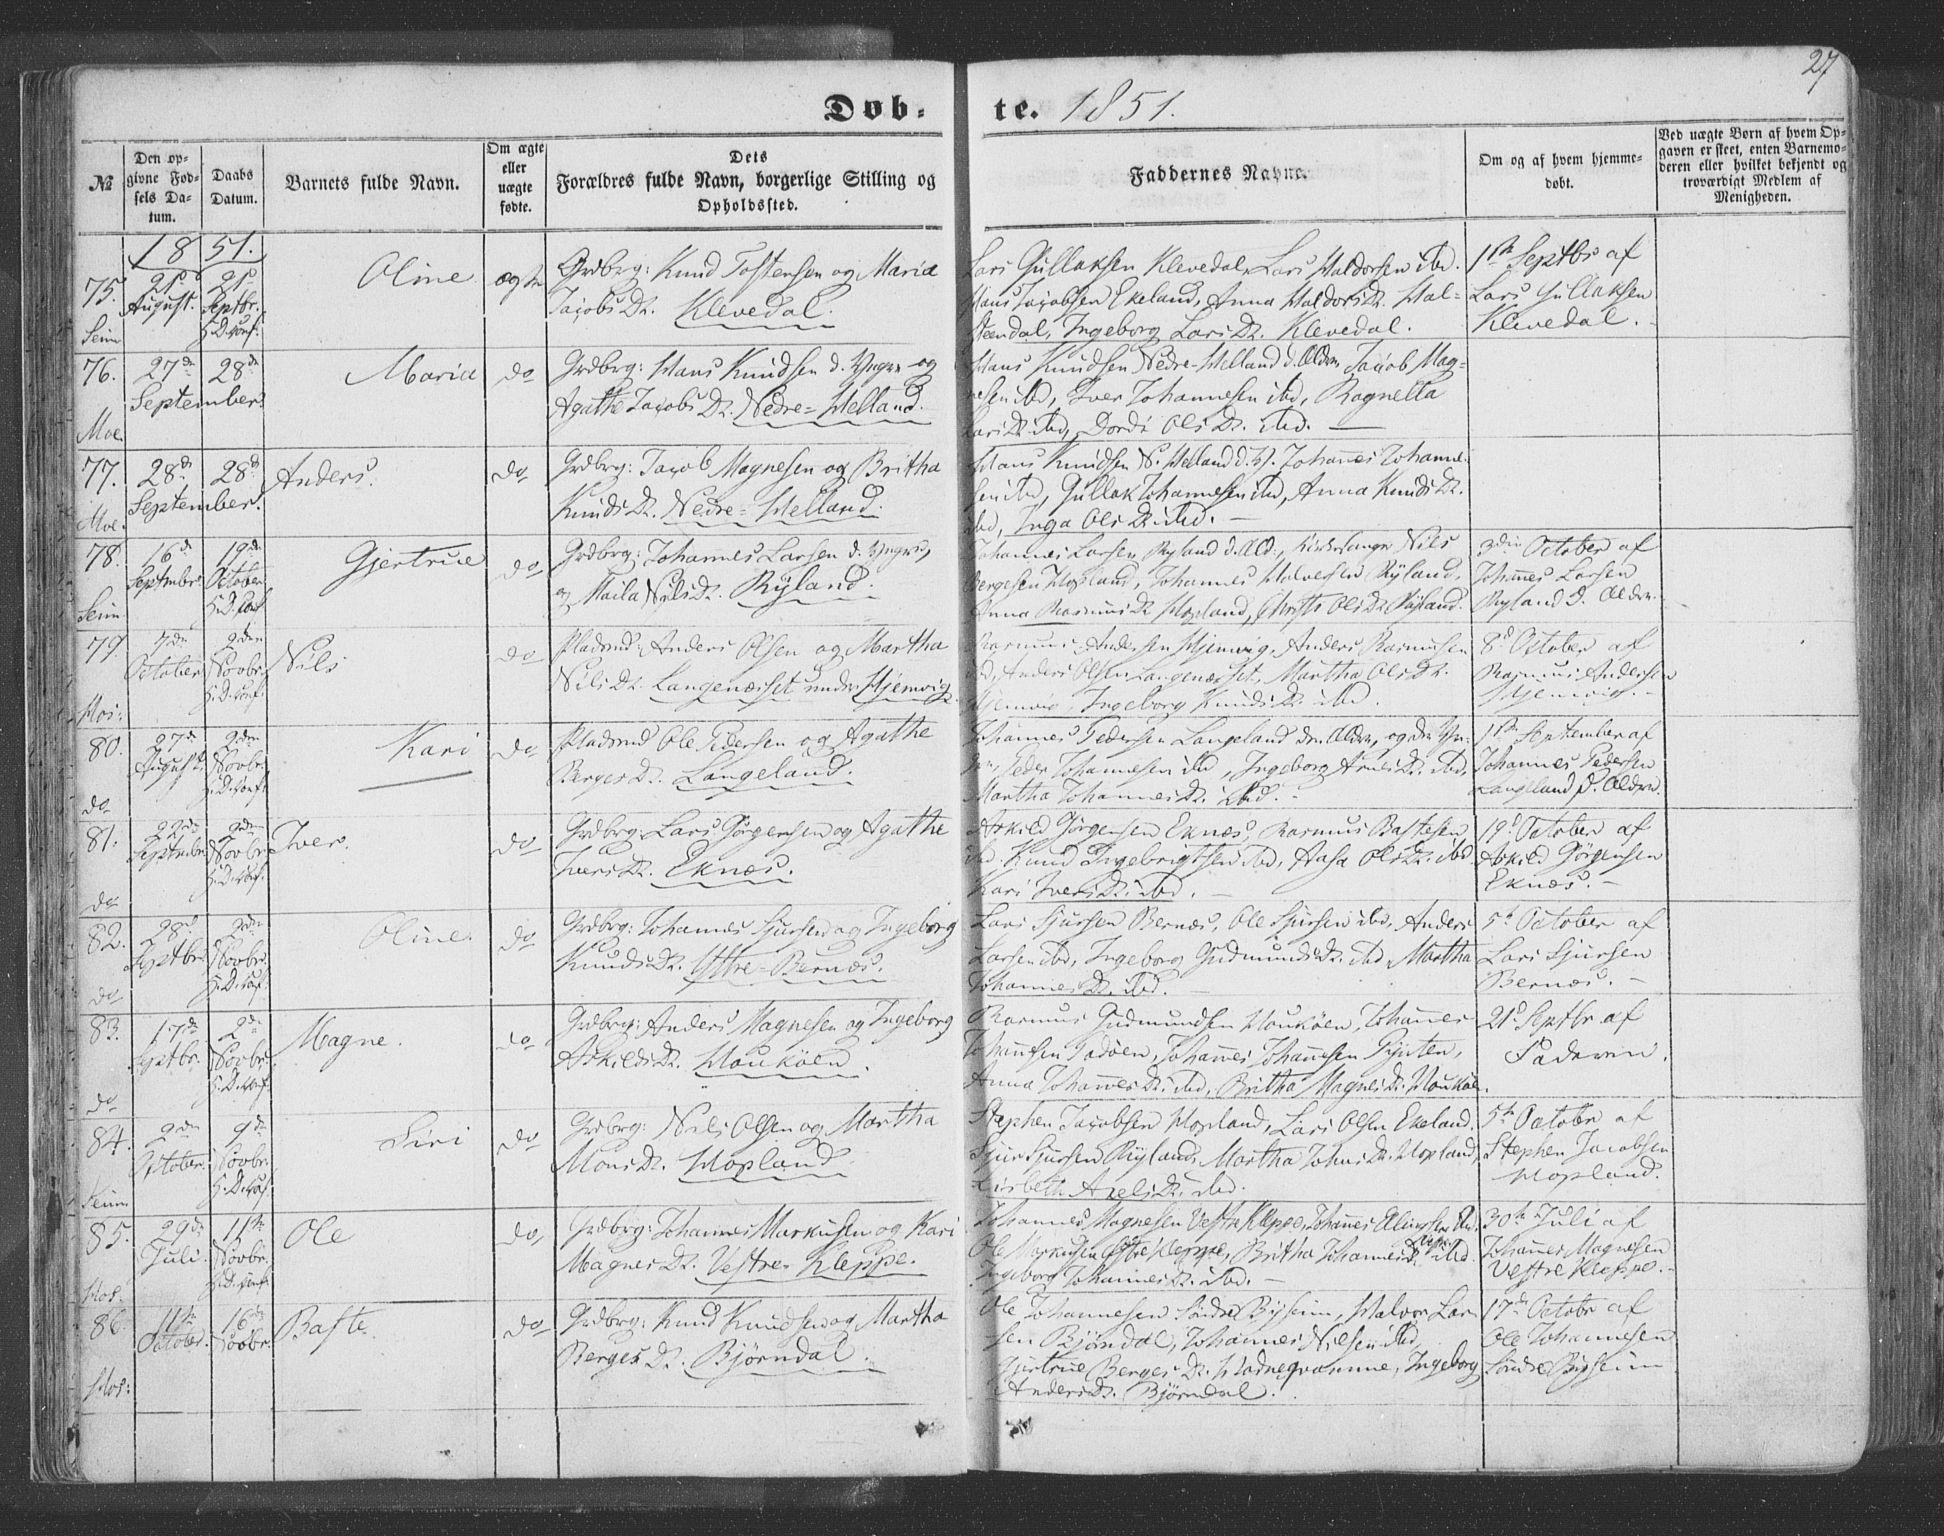 27
Døb-
te. 1851.
№
Den op-
givne Fød-
sels Da-
tum.
Daabs
Datum.
Barnets fulde Navn.
Om ægte
eller
uægte
fødte.
Dets
Forældres fulde Navn, borgerlige Stilling og
Opholdssted.
Faddernes Navne.
Om og af hvem hjemme-
døbt.
Ved uægte Børn af hvem Op-
gaven er skeet, enten Barnemo-
deren eller hvilket bekjendt og
troværdigt Medlem af
Menigheden.
1851.
75.
Seim
21d
August.
21d
Septbr.
H.D. Conf.
Oline
ægte
Grdbrg: Knud Tostensen og Maria
Jacobs Dr. Klevedal.
Lars Gullaksen Klevedal, Lars Haldorsen ibd.
Hans Jacobsen Ekeland, Anna Haldors Dr. Hal-
steendal, Ingeborg Lars Dr. Klevedal.
1ste Septbr af
Lars Gullaksen
Klevedal.
76.
Moe.
27de
September
28de
Maria
do
Grdbrg: Hans Knudsen d. Yngre og
Agathe Jacobs Dr. Nedre-Helland.
Hans Knudsen Nedre-Helland d. Ældre, Jacob Mag-
nesen ibd, Iver Johannesen ibd, Ragnella
Lars Dr. ibd, Dordi Ols Dr. ibd.
77.
Moe.
28de
September.
28de
Anders.
do
Grdbrg: Jacob Magnesen og Britha
Knuds Dr. Nedre-Helland.
Hans Knudsen N. Helland d. Y. Johannes Johanne-
sen ibd, Gullak Johannesen ibd, Anna Knuds Dr.
ibd, Inga Ols Dr. ibd.
78.
Seim
16d
Septembr.
19de
October
H.D. Conf
Gjertrue
do
Grdbrg: Johannes Larsen d. Yngre,
og Maila Nils Dr. Ryland.
Johannes Larsen Ryland d. Æld., Kirkesanger Nils
Bergesen Hopland, Johannes Halvorsen Ryland,
Anna Rasmus Dr. Hopland, Christi Ols Dr. Ryland.
3die October af
Johannes Larsen
Ryland d. Ældre.
79.
Hos:
7de
October
2den
Novbr.
H.D. Conf.
Nils
do
Pladsmd: Anders Olsen og Martha
Nils Dr. Langenesset under Hjemvig.
Rasmus Andersen Hjemvig, Anders Rasmussen
ibd, Anders Olsen Langenesset, Martha Ols Dr.
Hjemvig, Ingeborg Knuds Dr. ibd.
8d October af
Rasmus Andersen
Hjemvig.
80.
do
27de
August
2den
Novbr.
H.D. Conf.
Kari
do
Pladsmd Ole Pedersen og Agathe
Berges Dr. Langeland.
Johannes Pedersen Langeland den Ældre, og den Yn-
gre, Peder Johannesen ibd, Ingeborg Arnes Dr. ibd,
Martha Johannes Dr. ibd.
1ste September af
Johannes Pedersen
Langeland d. Ældre.
81.
do
22de
Septembr
2den
Novbr
H.D. Conf.
Iver.
do
Grdbrg: Lars Jörgensen og Agathe
Ivers Dr. Eknæs.
Askild Jörgensen Eknæs, Rasmus Bastesen
ibd, Knud Ingebrigtsen ibd, Aasa Ols Dr. ibd,
Kari Ivers Dr. ibd.
19d October af
Askild Jörgensen
Eknæs.
82.
do
28d.
Septbr.
2den
Novbr.
H.D. Conf.
Oline.
do
Grdbrg: Johannes Sjursen og Ingeborg
Knuds Dr. Ystre-Bernæs.
Lars Sjursen Bernæs, Ole Sjursen ibd, Anders
Larsen ibd, Ingeborg Gudmunds Dr. ibd, Martha
Johannes Dr. ibd.
5te October af
Lars Sjursen
Bernæs.
83.
do
17de
Septbr.
2de
Novbr.
H.D. Conf.
Magne.
do
Grdbrg: Anders Magnesen og Ingeborg
Askilds Dr. Houköen.
Rasmus Gudmundsen Houköen, Johannes
Johannesen Tadöen, Johannes Johannesen Rynten,
Anna Johannes Dr. ibd, Britha Magnes Dr. Houköen.
21d Septbr af
Faderen.
84.
Seim
2den
October.
9de
Novbr.
H.D. Conf.
Siri
do
Grdbrg: Nils Olsen og Martha
Mons Dr. Hopland.
Stephen Jacobsen Hopland, Lars Olsen Ekeland.
Sjur Sjursen Ryland, Martha Johns Dr. Hopland,
Lisbeth Axels Dr. ibd.
5te Octobr af
Stephen Jacobsen
Hopland.
85.
Hos.
29de
Juli.
11te
Novbr.
H.D. Conf.
Ole
do
Grdbrg: Johannes Markusen og Kari
Magnes Dr. Vestre Kleppe.
Johannes Magnesen Vestre Kleppe, Johannes ibd,
Ole Markusen Östre Kleppe, Britha Johannes Dr. ibd
Ingeborg Johannes Dr. ibd.
30te Juli af
Johannes Magnesen
Vestre Kleppe.
86.
Hos:
11te
October.
16de
Novbr.
Baste
do
Grdbrg: Knud Knudsen og Martha
Berges Dr. Björndal.
Ole Johannesen Söndre Byseim, Halvor Lar-
sen Björndal, Johannes Nilsen ibd
Gjertrue Berges Dr. Hodneqvamme, Ingeborg
Anders Dr. Björndal.
17de Octobr af
Ole Johannesen
Söndre Bysheim